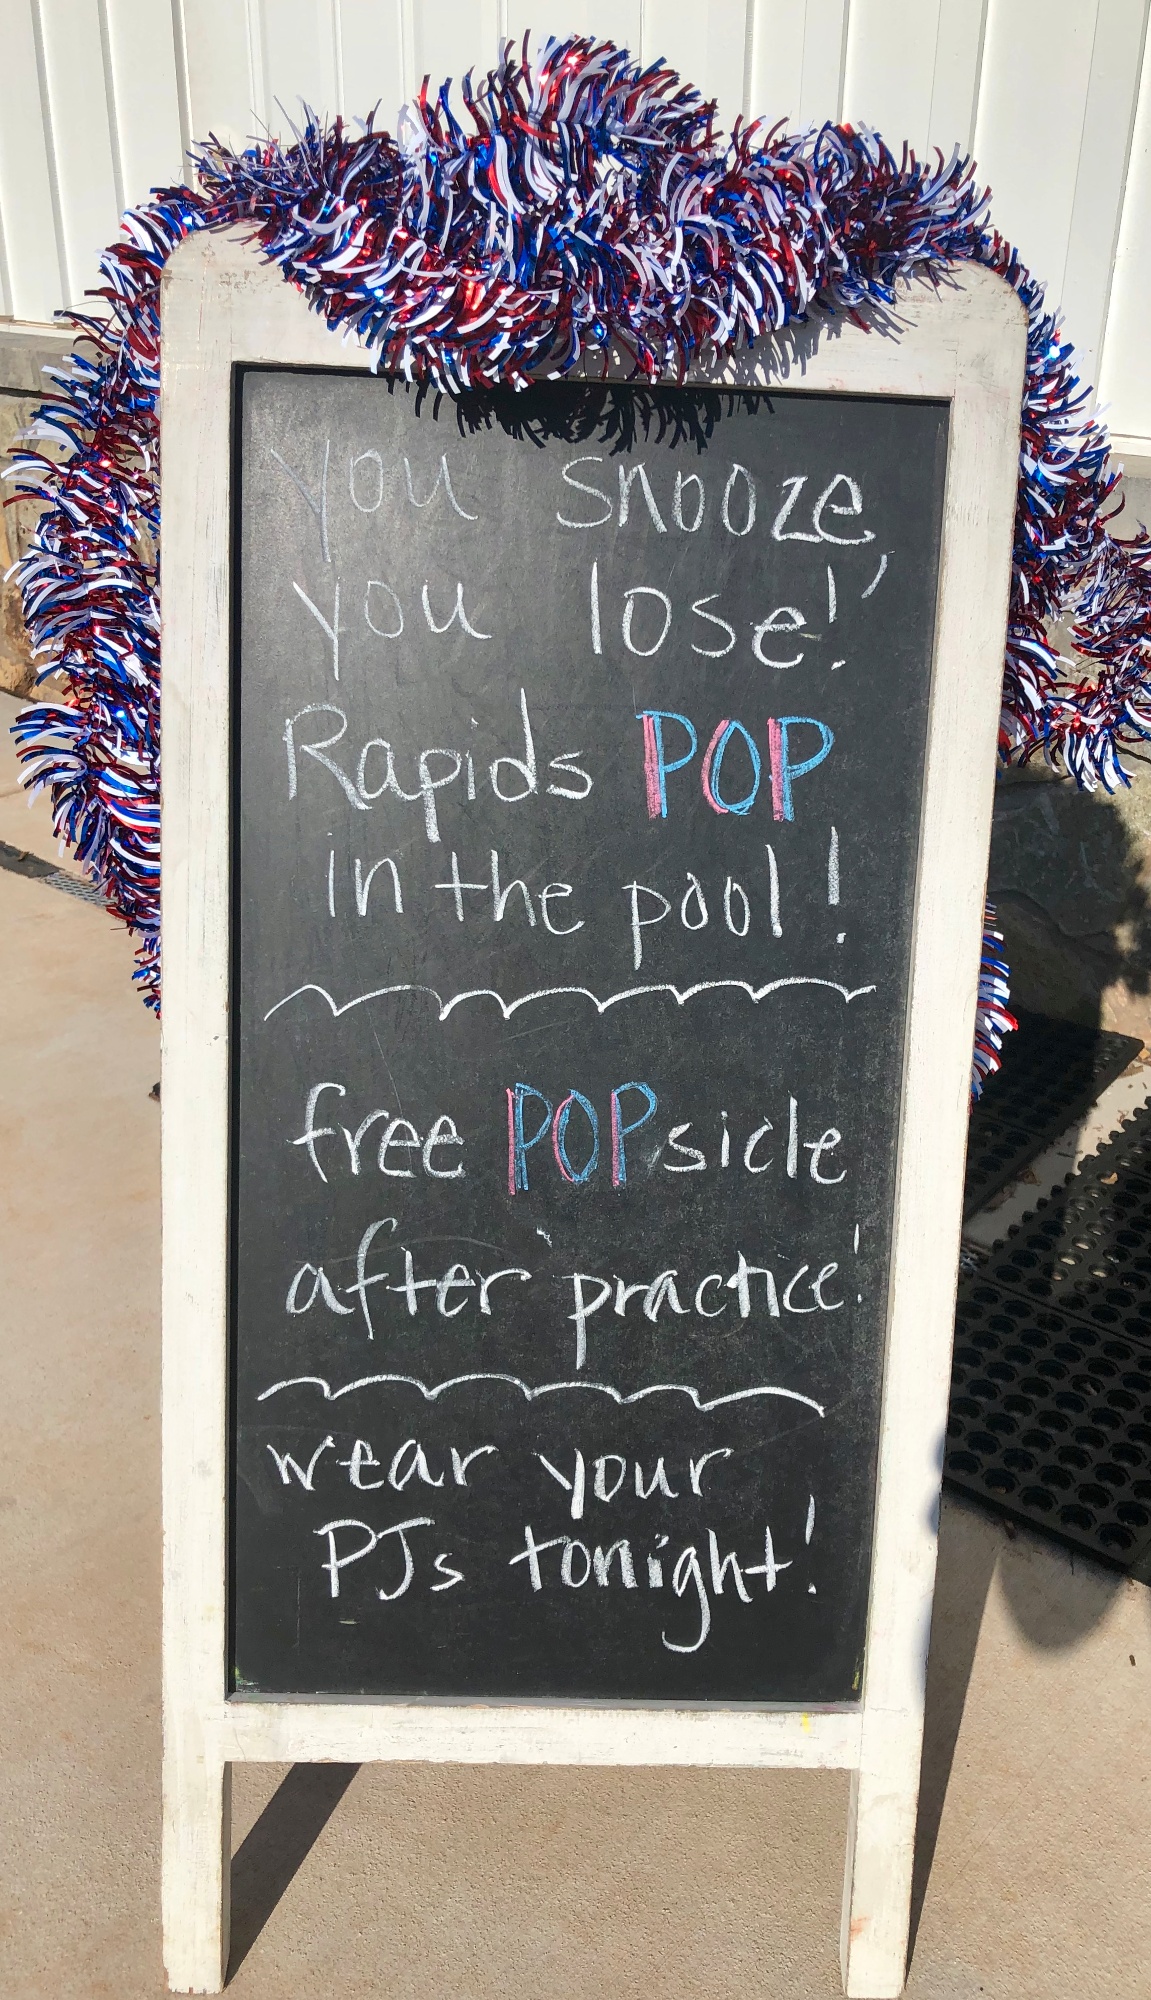 you snooze,
you lose!
Rapids POP
in the pool!
free POPsicle
after practice!
wear your
PJs tonight!